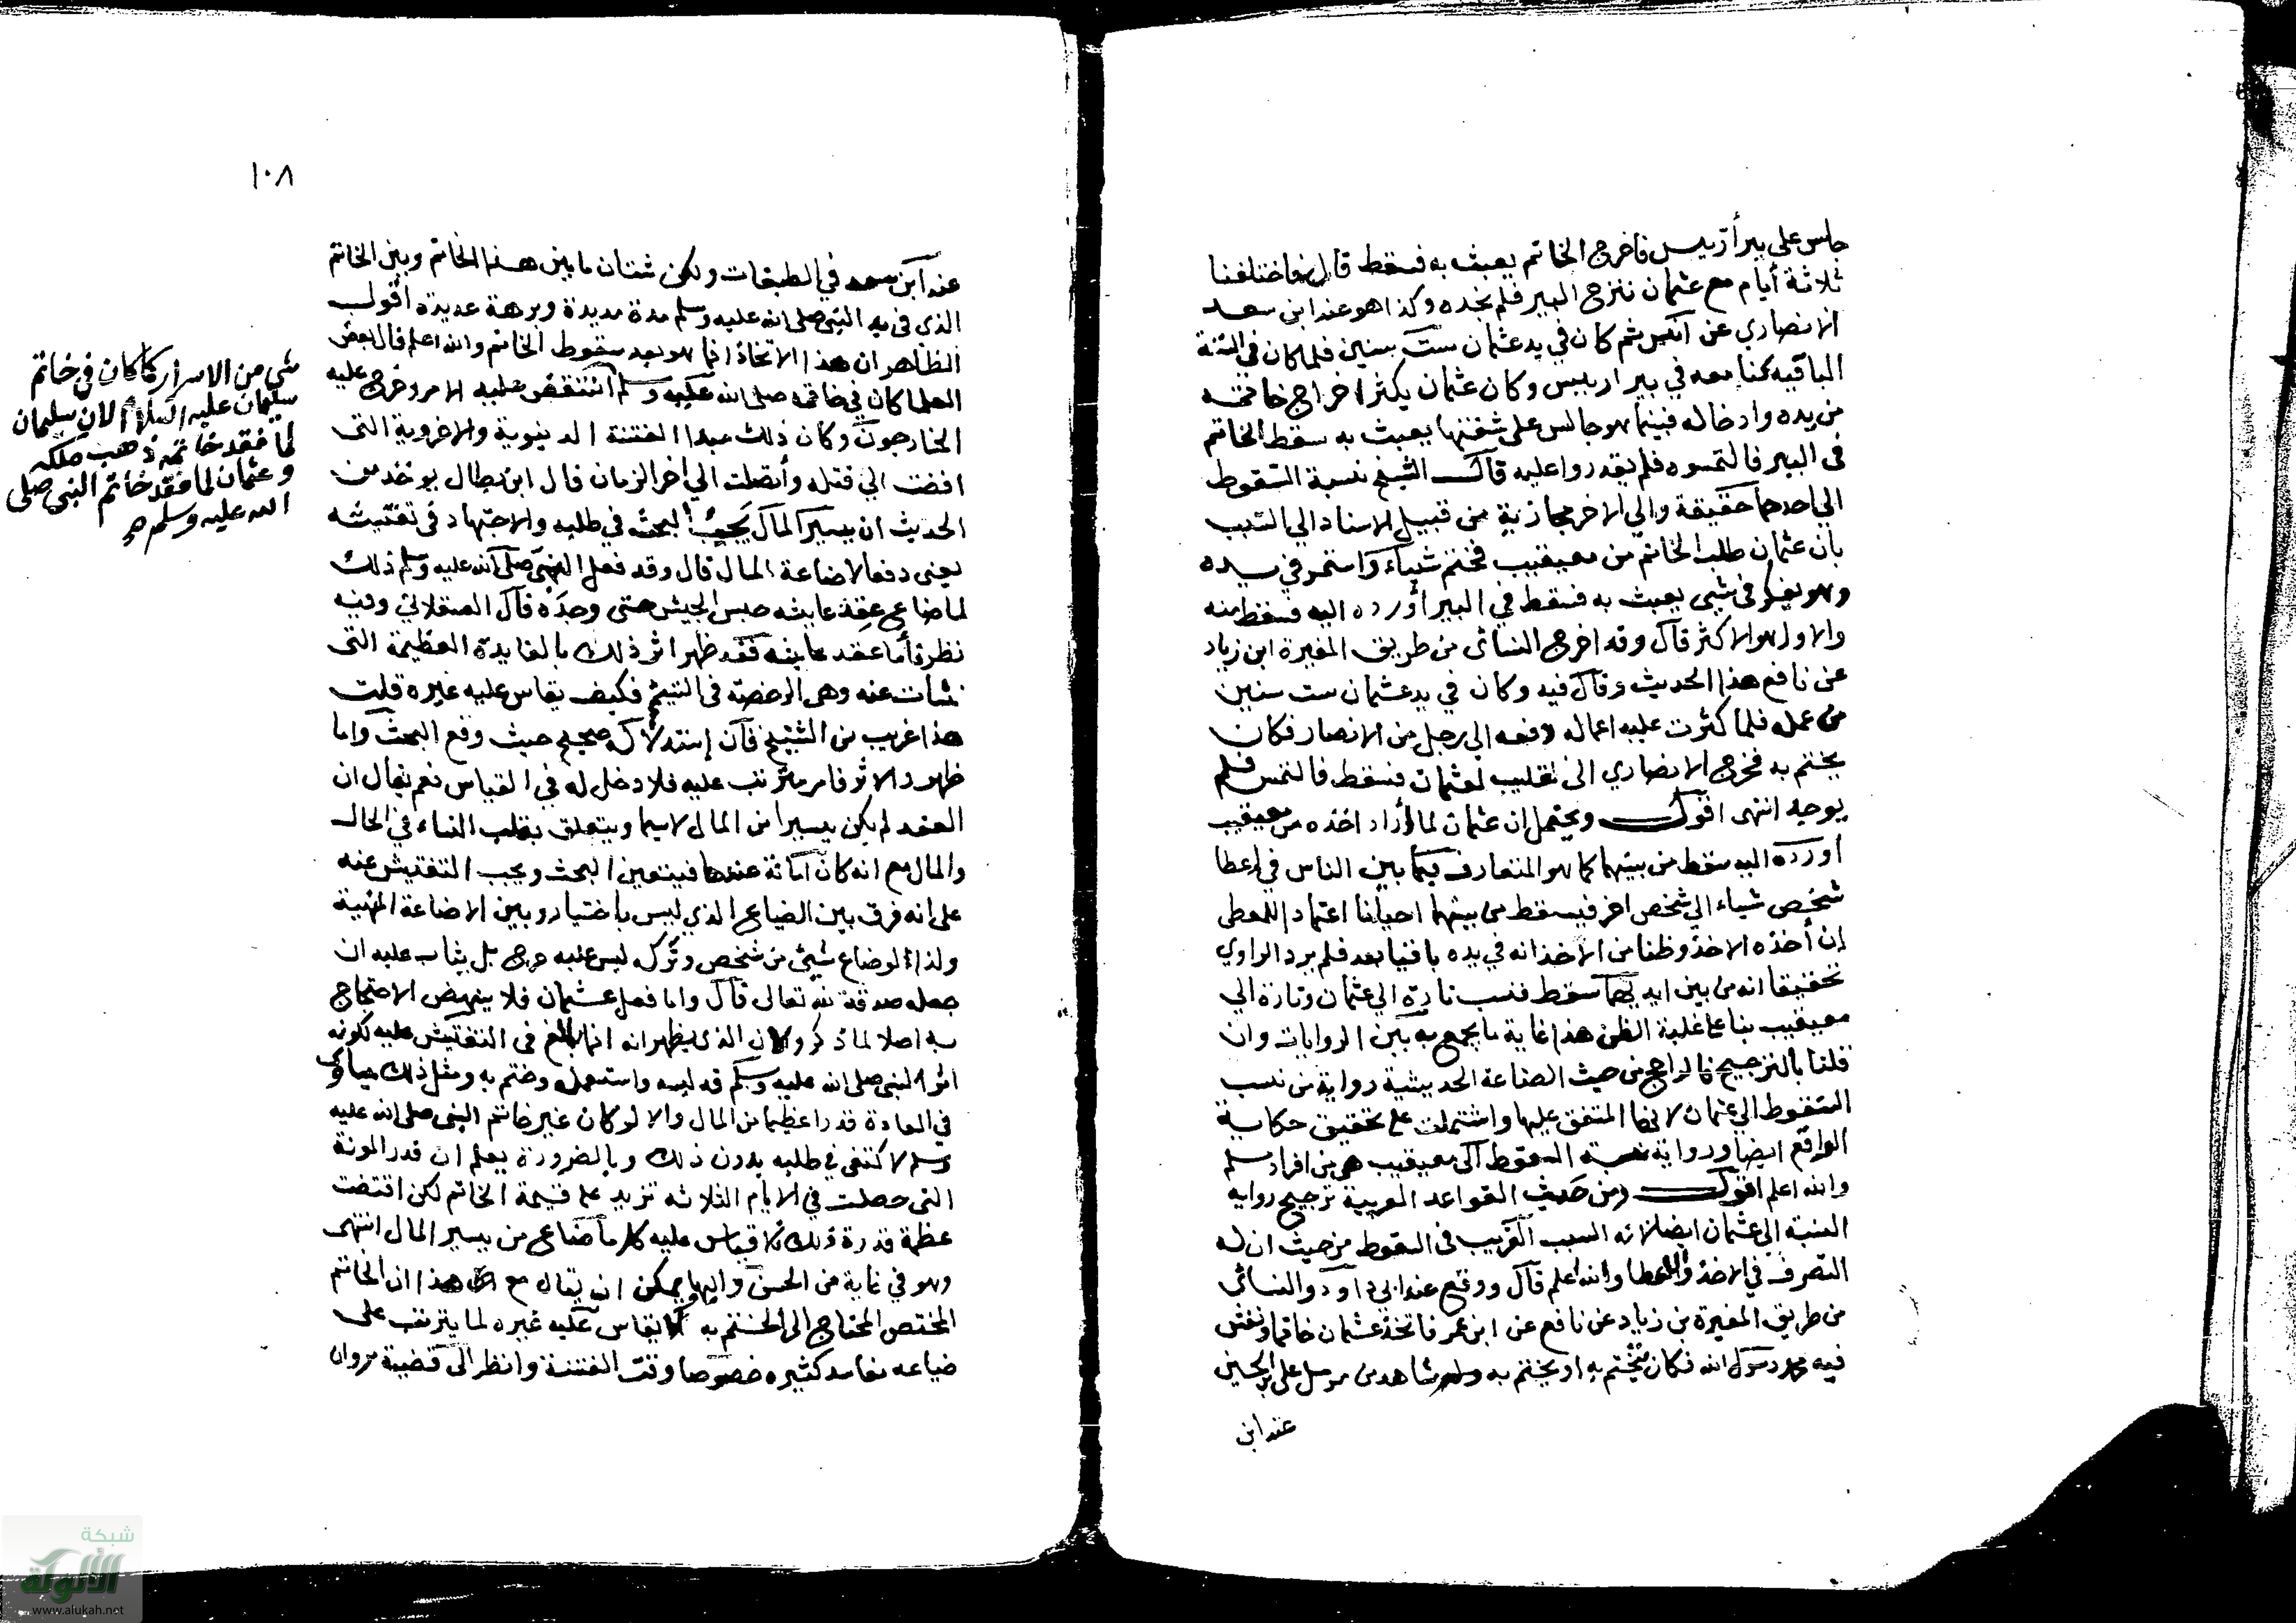 جالس على بير أريس فأخرج الخاتم يعبث به فسقط قال فاختلفنا
ثلاثة أيام مع عثمان ننزح البير فلم نجده وكذا هو عند ابن سعد
الانصاري عن أنس ثم كان في يد عثمان ست سنين فلما كان في الستة
الباقية كنا معه في بير اريس وكان عثمان يكثر اخراج خاتمه
من يده وادخاله فبينما هو جالس على شفتها يعبث به سقط الخاتم
في البير فالتمسوه فلم يقدروا عليه قال الشيخ نسبة السقوط
الي احدهما حقيقة والي الاخر مجازية من قبيل الاسناد الي السبب
بان عثمان طلب الخاتم من معيقيب فختم شياء واستمر في يده
وهو يفكر في شيى يعبث به فسقط في البير أو رده اليه فسقط منه
والاول هو الاكثر قال وقد اخرج النسائى من طريق المغيرة ابن زياد
عن نافع هذا الحديث وقال فيه وكان في يد عثمان ست سنين
من عمله فلما كثرت عليه اعماله دفعه الي رجل من الانصار فكان
يختم به فخرج الانصاري الى قليب لعثمان فسقط فالتمس فلم
يوجد انتهى اقول ويحتمل ان عثمان لما أراد اخذه من معيقيب
أو رده اليه سقط من بينهما كما هو المتعارف فيما بين الناس في إعطا
شخص شياء الي شخص اخر فيسقط من بينهما احيانا اعتمادا للمعطى
إن أخذه الاخذ وظنا من الاخذ انه في يده باقيا بعد فلم يرد الراوي
تحقيقا انه من بين ايديهما سقط فنسب تارة الي عثمان وتارة الي
معيقيب بنا على غلبة الظن هذا غاية ما يجمع به بين الروايات وان
قلنا بالترجيح فالراجح من حيث الصناعة الحديثية رواية من نسب
السقوط الي عثمان لانها المتفق عليها واشتملت على تحقيق حكاية
الواقع ايضا ورواية نسبة السقوط الى معيقيب هي من افراد مسلم
والله اعلم اقول ومن حيث القواعد العربية ترجيح رواية
النسبة الي عثمان ايضا لانه السبب القريب في السقوط من حيث ان له
التصرف في الاخذ والاعطا والله اعلم قال ووقع عند ابي داود والنسائى
من طريق المغيرة بن زياد عن نافع عن ابن عمر فاتخذ عثمان خاتما ونقش
فيه محمد رسول الله فكان يختم به او يتختم به وله شاهد من مرسل على بن الحسين
عند ابن
١٠٨
عند ابن سعد في الطبقات ولكن شتان ما بين هذا الخاتم وبين الخاتم
الذي في يد النبى صلى الله عليه وسلم مدة مديدة وبرهة عديدة أقول
الظاهر ان هذا الاتخاذ انما هو بعد سقوط الخاتم والله اعلم قال بعض
العلما كان في خاتمه صلى الله عليه وسلم انتقض عليه الامر وخرج عليه
الخارجون وكان ذلك مبدا الفتنة الدنيوية والاخروية التى
افضت الي قتله وأتصلت الي اخر الزمان قال ابن بطال يوخذ من
الحديث ان يسير المال يجب البحث في طلبه والاجتهاد في تفتيشه
يعنى دفعا لاضاعة المال قال وقد فعل النبى صلى الله عليه وسلم ذلك
لما ضاع عقد عايشه حبس الجيش حتى وجده قال العسقلانى وفيه
نظر فأما عقد عايشه فقد ظهر اثر ذلك بالفايدة العظيمة التى
نشأت عنه وهى الرخصة في التيمم فكيف يقاس عليه غيره قلت
هذا غريب من الشيخ فان إستدلاله صحيح حيث وقع البحث واما
ظهور الاثر فامر مترتب عليه فلا دخل له في القياس نعم يقال ان
العقد لم يكن يسيرا من المال لاسيما ويتعلق بقلب النساء في الحال
والمال مع انه كان أمانة عندها فيتعين البحث ويجب التفتيش عنه
على انه فرق بين الضياع الذي ليس باختياره وبين الاضاعة المنهية
ولذا لو ضاع شيئ من شخص وتركه ليس عليه حرج بل يثاب عليه ان
جعله صدقة لله تعالى قال واما فعل عثمان فلا ينهض الاحتجاج
به اصلا لما ذكر ولان الذي يظهر انه انما بالغ في التفتيش عليه لكونه
اثر النبى صلى الله عليه وسلم قد لبسه واستعمله وختم به ومثل ذلك يساوى
في العادة قدرا عظيما من المال والا لو كان غير خاتم النبى صلى الله عليه
وسلم لاكتفى في طلبه بدون ذلك وبالضرورة يعلم ان قدر المونة
التى حصلت في الايام الثلاثه تزيد على قيمة الخاتم لكن اقتضت
عظمة قدره ذلك فلا قياس عليه كل ما ضاع من يسير المال انتهى
وهو في غاية من الحسن والبها ويمكن ان يقال مع هذا ان الخاتم
المختص المحتاج الى الختم به لا يقاس عليه غيره لما يترتب على
ضياعه مفاسد كثيره خصوصا وقت الفتنة وانظر الى قضية مروان
شى من الاسرار كما كان في خاتم
سليمان عليه السلام لان سليمان
لما فقد خاتمه ذهب ملكه
وعثمان لما فقد خاتم النبى صلى
الله عليه وسلم صح
شبكة
الألوكة
www.alukah.net